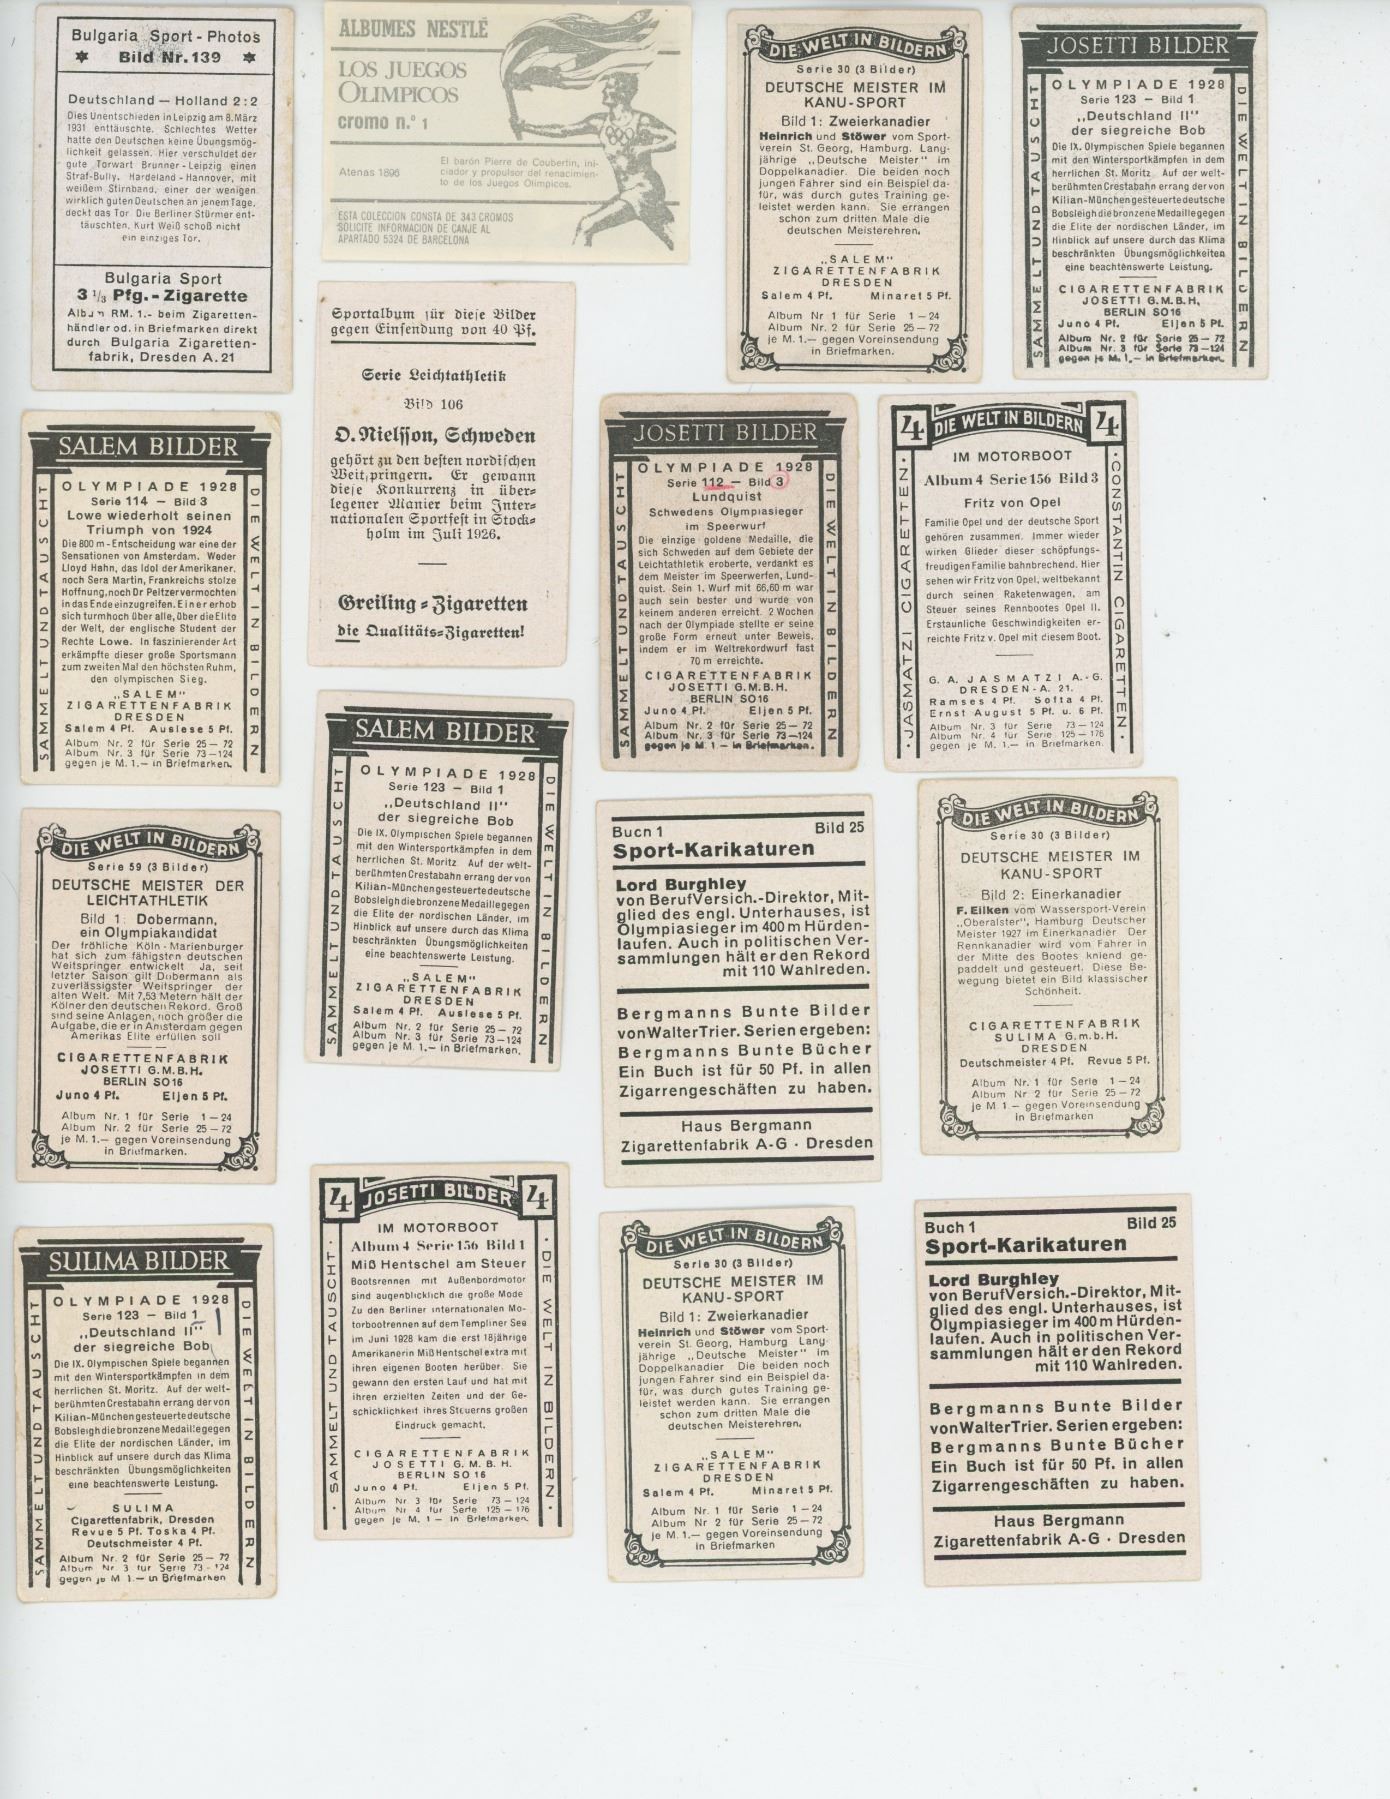 Bulgaria Sport - Photos
Bild Nr. 139
Deutschland — Holland 2 : 2
Dies Unentschieden in Leipzig am 8. März
1931 enttäuschte. Schlechtes Wetter
hatte den Deutschen keine Übungsmög-
lichkeit gelassen. Hier verschuldet der
gute Torwart Brunner - Leipzig einen
Straf-Bully. Hardeland - Hannover, mit
weißem Stirnband, einer der wenigen
wirklich guten Deutschen an jenem Tage,
deckt das Tor. Die Berliner Stürmer ent-
täuschten. Kurt Weiß schoß nicht
ein einziges Tor.
Bulgaria Sport
3 1/3 Pfg. - Zigarette
Album RM. 1.- beim Zigaretten-
händler od. in Briefmarken direkt
durch Bulgaria Zigaretten-
fabrik, Dresden A. 21
ALBUMES NESTLÉ
LOS JUEGOS
OLIMPICOS
cromo n.° 1
Atenas 1896
El barón Pierre de Coubertin, ini-
ciador y propulsor del renacimien-
to de los Juegos Olímpicos.
ESTA COLECCION CONSTA DE 343 CROMOS
SOLICITE INFORMACION DE CANJE AL
APARTADO 5324 DE BARCELONA
DIE WELT IN BILDERN
Serie 30 (3 Bilder)
DEUTSCHE MEISTER IM
KANU-SPORT
Bild 1: Zweierkanadier
Heinrich und Stöwer vom Sport-
verein St. Georg, Hamburg. Lang-
jährige „Deutsche Meister" im
Doppelkanadier. Die beiden noch
jungen Fahrer sind ein Beispiel da-
für, was durch gutes Training ge-
leistet werden kann. Sie errangen
schon zum dritten Male die
deutschen Meisterehren.
„SALEM"
ZIGARETTENFABRIK
DRESDEN
Salem 4 Pf. Minaret 5 Pf.
Album Nr. 1 für Serie 1 — 24
Album Nr. 2 für Serie 25 — 72
je M. 1.— gegen Voreinsendung
in Briefmarken.
JOSETTI BILDER
SAMMELT UND TAUSCHT
OLYMPIADE 1928
Serie 123 — Bild 1
„Deutschland II"
der siegreiche Bob
Die IX. Olympischen Spiele begannen
mit den Wintersportkämpfen in dem
herrlichen St. Moritz. Auf der welt-
berühmten Crestabahn errang der von
Kilian-München gesteuerte deutsche
Bobsleigh die bronzene Medaille gegen
die Elite der nordischen Länder, im
Hinblick auf unsere durch das Klima
beschränkten Übungsmöglichkeiten
eine beachtenswerte Leistung.
CIGARETTENFABRIK
JOSETTI G.M.B.H.
BERLIN SO 16
Juno 4 Pf. Eljen 5 Pf.
Album Nr. 2 für Serie 25 — 72
Album Nr. 3 für Serie 73 — 124
gegen je M. 1.— in Briefmarken.
DIE WELT IN BILDERN
Sportalbum für diese Bilder
gegen Einsendung von 40 Pf.
Serie Leichtathletik
Bild 106
O. Nielsson, Schweden
gehört zu den besten nordischen
Weitspringern. Er gewann
diese Konkurrenz in über-
legener Manier beim Inter-
nationalen Sportfest in Stock-
holm im Juli 1926.
Greiling-Zigaretten
die Qualitäts-Zigaretten!
SALEM BILDER
SAMMELT UND TAUSCHT
OLYMPIADE 1928
Serie 114 — Bild 3
Lowe wiederholt seinen
Triumph von 1924
Die 800 m - Entscheidung war eine der
Sensationen von Amsterdam. Weder
Lloyd Hahn, das Idol der Amerikaner,
noch Sera Martin, Frankreichs stolze
Hoffnung, noch Dr Peltzer vermochten
in das Ende einzugreifen. Einer erhob
sich turmhoch über alle, über die Elite
der Welt, der englische Student der
Rechte Lowe. In faszinierender Art
erkämpfte dieser große Sportsmann
zum zweiten Mal den höchsten Ruhm,
den olympischen Sieg.
„SALEM"
ZIGARETTENFABRIK
DRESDEN
Salem 4 Pf. Auslese 5 Pf.
Album Nr. 2 für Serie 25 — 72
Album Nr. 3 für Serie 73—124
gegen je M. 1.— in Briefmarken.
DIE WELT IN BILDERN
JOSETTI BILDER
SAMMELT UND TAUSCHT
OLYMPIADE 1928
Serie 112 — Bild 3
Lundquist
Schwedens Olympiasieger
im Speerwurf
Die einzige goldene Medaille, die
sich Schweden auf dem Gebiete der
Leichtathletik eroberte, verdankt es
dem Meister im Speerwerfen, Lund-
quist. Sein 1. Wurf mit 66,60 m war
auch sein bester und wurde von
keinem anderen erreicht. 2 Wochen
nach der Olympiade stellte er seine
große Form erneut unter Beweis,
indem er im Weltrekordwurf fast
70 m erreichte.
CIGARETTENFABRIK
JOSETTI G.M.B.H.
BERLIN SO16
Juno 4 Pf. Eljen 5 Pf.
Album Nr. 2 für Serie 25 — 72
Album Nr. 3 für Serie 73—124
gegen je M. 1 — in Briefmarken.
DIE WELT IN BILDERN
4 DIE WELT IN BILDERN 4
· JASMATZI CIGARETTEN ·
IM MOTORBOOT
Album 4 Serie 156 Bild 3
Fritz von Opel
Familie Opel und der deutsche Sport
gehören zusammen. Immer wieder
wirken Glieder dieser schöpfungs-
freudigen Familie bahnbrechend. Hier
sehen wir Fritz von Opel, weltbekannt
durch seinen Raketenwagen, am
Steuer seines Rennbootes Opel II.
Erstaunliche Geschwindigkeiten er-
reichte Fritz v. Opel mit diesem Boot.
G. A. JASMATZI A.-G.
DRESDEN-A. 21.
Ramses 4 Pf. Softa 4 Pf.
Ernst August 5 Pf. u. 6 Pf.
Album Nr. 3 für Serie 73—124
Album Nr. 4 für Serie 125—176
gegen je M. 1.— in Briefmarken.
· CONSTANTIN CIGARETTEN ·
SALEM BILDER
SAMMELT UND TAUSCHT
OLYMPIADE 1928
Serie 123 — Bild 1
„Deutschland II"
der siegreiche Bob
Die IX. Olympischen Spiele begannen
mit den Wintersportkämpfen in dem
herrlichen St. Moritz. Auf der welt-
berühmten Crestabahn errang der von
Kilian-München gesteuerte deutsche
Bobsleigh die bronzene Medaille gegen
die Elite der nordischen Länder, im
Hinblick auf unsere durch das Klima
beschränkten Übungsmöglichkeiten
eine beachtenswerte Leistung.
„SALEM"
ZIGARETTENFABRIK
DRESDEN
Salem 4 Pf. Auslese 5 Pf.
Album Nr. 2 für Serie 25 — 72
Album Nr. 3 für Serie 73—124
gegen je M. 1.— in Briefmarken.
DIE WELT IN BILDERN
DIE WELT IN BILDERN
Serie 59 (3 Bilder)
DEUTSCHE MEISTER DER
LEICHTATHLETIK
Bild 1: Dobermann,
ein Olympiakandidat
Der fröhliche Köln - Marienburger
hat sich zum fähigsten deutschen
Weitspringer entwickelt. Ja, seit
letzter Saison gilt Dobermann als
zuverlässigster Weitspringer der
alten Welt. Mit 7,53 Metern hält der
Kölner den deutschen Rekord. Groß
sind seine Anlagen, noch größer die
Aufgabe, die er in Amsterdam gegen
Amerikas Elite erfüllen soll
CIGARETTENFABRIK
JOSETTI G.M.B.H.
BERLIN SO16
Juno 4 Pf. Eljen 5 Pf.
Album Nr. 1 für Serie 1 — 24
Album Nr. 2 für Serie 25 — 72
je M. 1.— gegen Voreinsendung
in Briefmarken.
Buch 1 Bild 25
Sport-Karikaturen
Lord Burghley
von Beruf Versich.-Direktor, Mit-
glied des engl. Unterhauses, ist
Olympiasieger im 400 m Hürden-
laufen. Auch in politischen Ver-
sammlungen hält er den Rekord
mit 110 Wahlreden.
Bergmanns Bunte Bilder
von Walter Trier. Serien ergeben:
Bergmanns Bunte Bücher
Ein Buch ist für 50 Pf. in allen
Zigarrengeschäften zu haben.
Haus Bergmann
Zigarettenfabrik A-G · Dresden
DIE WELT IN BILDERN
Serie 30 (3 Bilder)
DEUTSCHE MEISTER IM
KANU-SPORT
Bild 2: Einerkanadier
F. Eilken vom Wassersport-Verein
„Oberalster", Hamburg Deutscher
Meister 1927 im Einerkanadier Der
Rennkanadier wird vom Fahrer in
der Mitte des Bootes kniend ge-
paddelt und gesteuert. Diese Be-
wegung bietet ein Bild klassischer
Schönheit.
CIGARETTENFABRIK
SULIMA G.m.b.H.
DRESDEN
Deutschmeister 4 Pf. Revue 5 Pf.
Album Nr. 1 für Serie 1—24
Album Nr. 2 für Serie 25—72
je M 1.— gegen Voreinsendung
in Briefmarken
SULIMA BILDER
SAMMELT UND TAUSCHT
OLYMPIADE 1928
Serie 123 — Bild 1
„Deutschland II"
der siegreiche Bob
Die IX. Olympischen Spiele begannen
mit den Wintersportkämpfen in dem
herrlichen St. Moritz. Auf der welt-
berühmten Crestabahn errang der von
Kilian-München gesteuerte deutsche
Bobsleigh die bronzene Medaille gegen
die Elite der nordischen Länder, im
Hinblick auf unsere durch das Klima
beschränkten Übungsmöglichkeiten
eine beachtenswerte Leistung.
SULIMA
Cigarettenfabrik, Dresden
Revue 5 Pf. Toska 4 Pf.
Deutschmeister 4 Pf.
Album Nr. 2 für Serie 25 — 72
Album Nr. 3 für Serie 73 - 124
gegen je M 1.— in Briefmarken
DIE WELT IN BILDERN
4 JOSETTI BILDER 4
· SAMMELT UND TAUSCHT ·
IM MOTORBOOT
Album 4 Serie 156 Bild 1
Miß Hentschel am Steuer
Bootsrennen mit Außenbordmotor
sind augenblicklich die große Mode
Zu den Berliner internationalen Mo-
torbootrennen auf dem Templiner See
im Juni 1928 kam die erst 18jährige
Amerikanerin Miß Hentschel extra mit
ihren eigenen Booten herüber. Sie
gewann den ersten Lauf und hat mit
ihren erzielten Zeiten und der Ge-
schicklichkeit ihres Steuerns großen
Eindruck gemacht.
CIGARETTENFABRIK
JOSETTI G. M. B. H.
BERLIN SO 16
Juno 4 Pf. Eljen 5 Pf.
Album Nr. 3 für Serie 73 — 124
Album Nr 4 für Serie 125 — 176
gegen je M. 1 — in Briefmarken.
· DIE WELT IN BILDERN ·
DIE WELT IN BILDERN
Serie 30 (3 Bilder)
DEUTSCHE MEISTER IM
KANU-SPORT
Bild 1: Zweierkanadier
Heinrich und Stöwer vom Sport-
verein St. Georg, Hamburg Lang-
jährige „Deutsche Meister" im
Doppelkanadier Die beiden noch
jungen Fahrer sind ein Beispiel da-
für, was durch gutes Training ge-
leistet werden kann. Sie errangen
schon zum dritten Male die
deutschen Meisterehren.
„SALEM"
ZIGARETTENFABRIK
DRESDEN
Salem 4 Pf. Minaret 5 Pf.
Album Nr. 1 für Serie 1 — 24
Album Nr 2 für Serie 25 — 72
je M. 1.— gegen Voreinsendung
in Briefmarken
Buch 1 Bild 25
Sport-Karikaturen
Lord Burghley
von Beruf Versich.-Direktor, Mit-
glied des engl. Unterhauses, ist
Olympiasieger im 400 m Hürden-
laufen. Auch in politischen Ver-
sammlungen hält er den Rekord
mit 110 Wahlreden.
Bergmanns Bunte Bilder
von Walter Trier. Serien ergeben:
Bergmanns Bunte Bücher
Ein Buch ist für 50 Pf. in allen
Zigarrengeschäften zu haben.
Haus Bergmann
Zigarettenfabrik A-G · Dresden